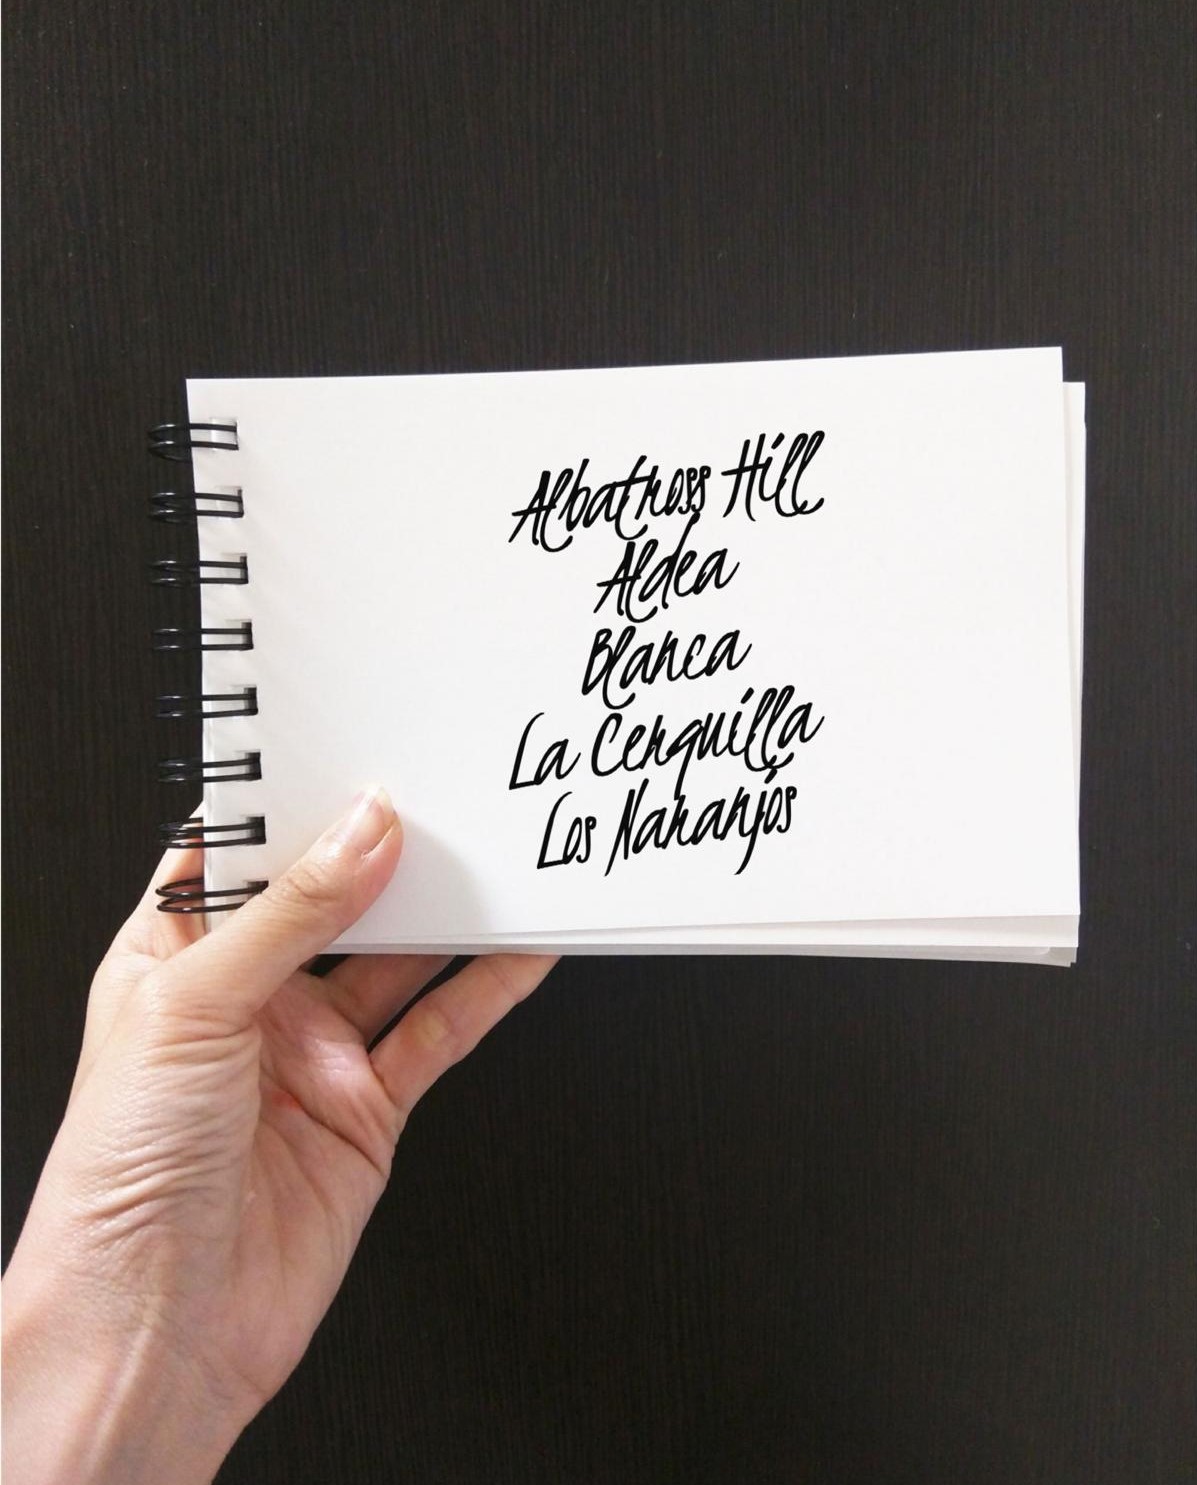 Albatross Hill
Aldea
Blanca
La Cerquilla
Los Naranjos